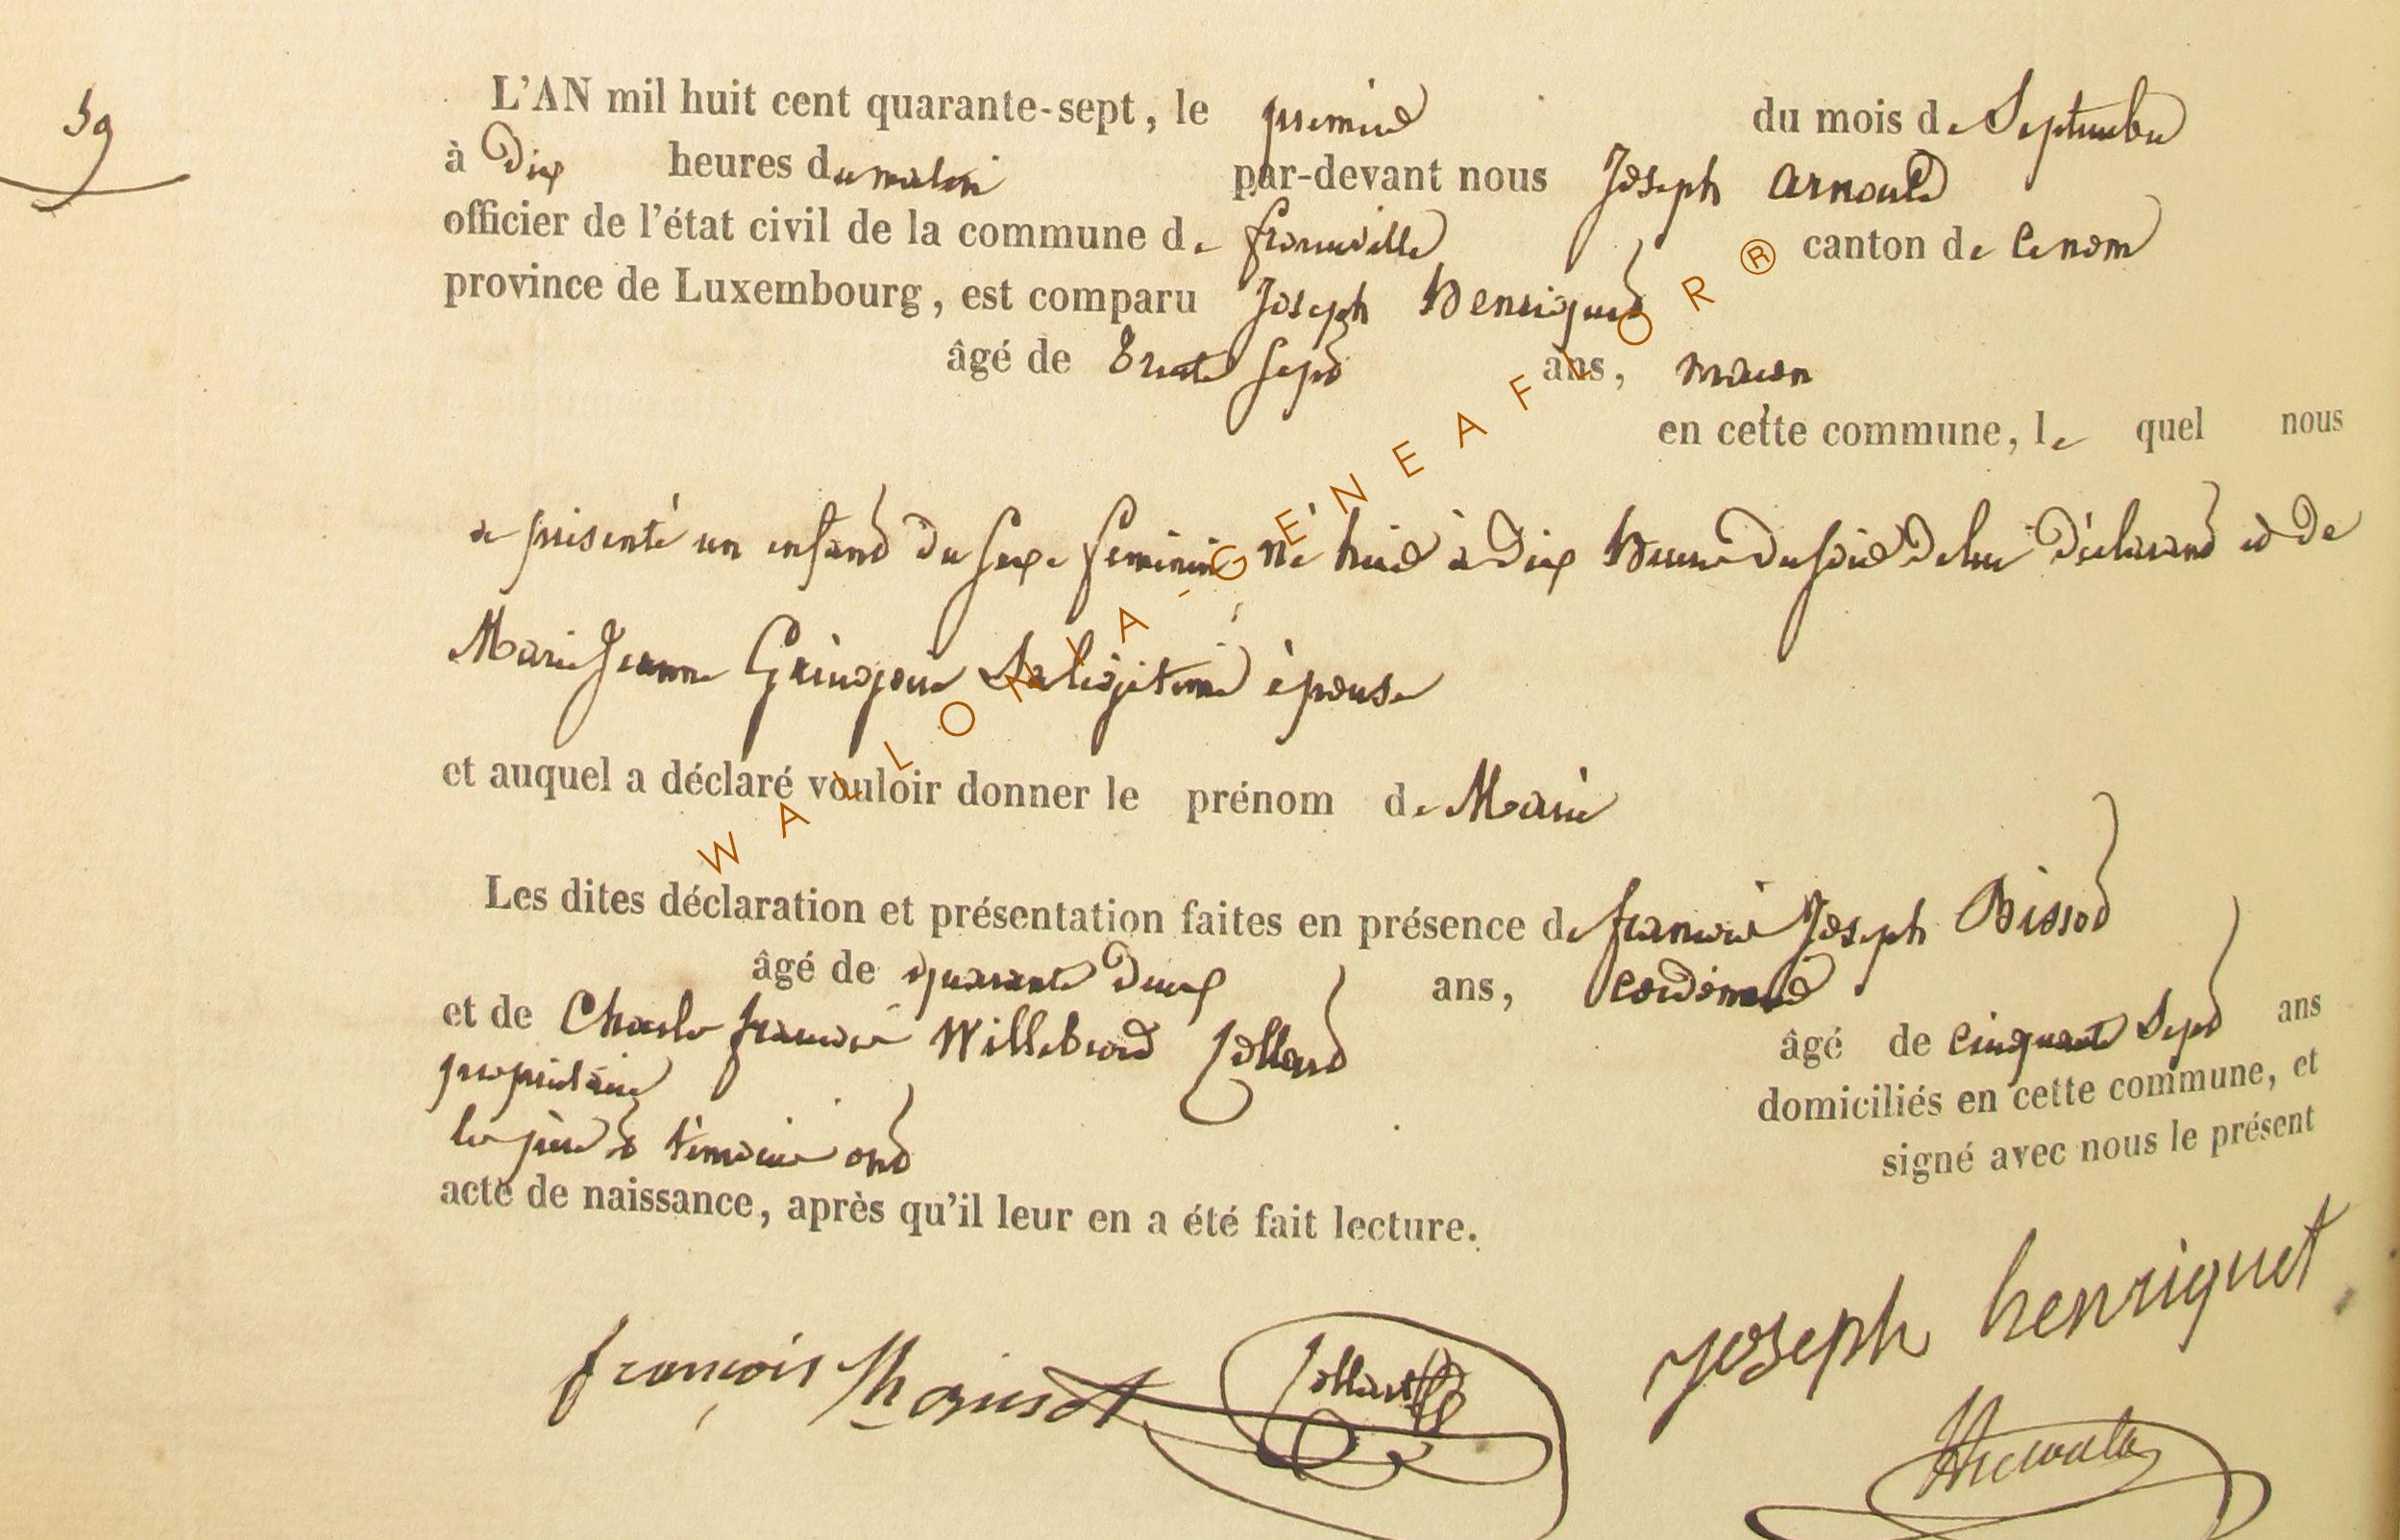 39
L'AN mil huit cent quarante-sept, le premier du mois de Septembre
à Dix heures du matin par-devant nous Joseph Arnould
officier de l'état civil de la commune de canton de
province de Luxembourg, est comparu Joseph Henriquet
âgé de Trente Sept ans, maçon
en cette commune, le quel nous
a présenté un enfant du Sexe feminin né hier à Dix heures du soir de lui Déclarant et de
Marie Jeanne Sa légitime épouse
et auquel a déclaré vouloir donner le prénom de Marie
Les dites déclaration et présentation faites en présence de françois Joseph
âgé de quarante Deux ans, Cordonnier
et de Charles françois Willebrord Collard âgé de Cinquante Sept ans
propriétaire domiciliés en cette commune, et
les père & témoins ont signé avec nous le présent
acte de naissance, après qu'il leur en a été fait lecture.
joseph henriquet
françois Collard
WALLONIA-GÉNÉAFLOR®